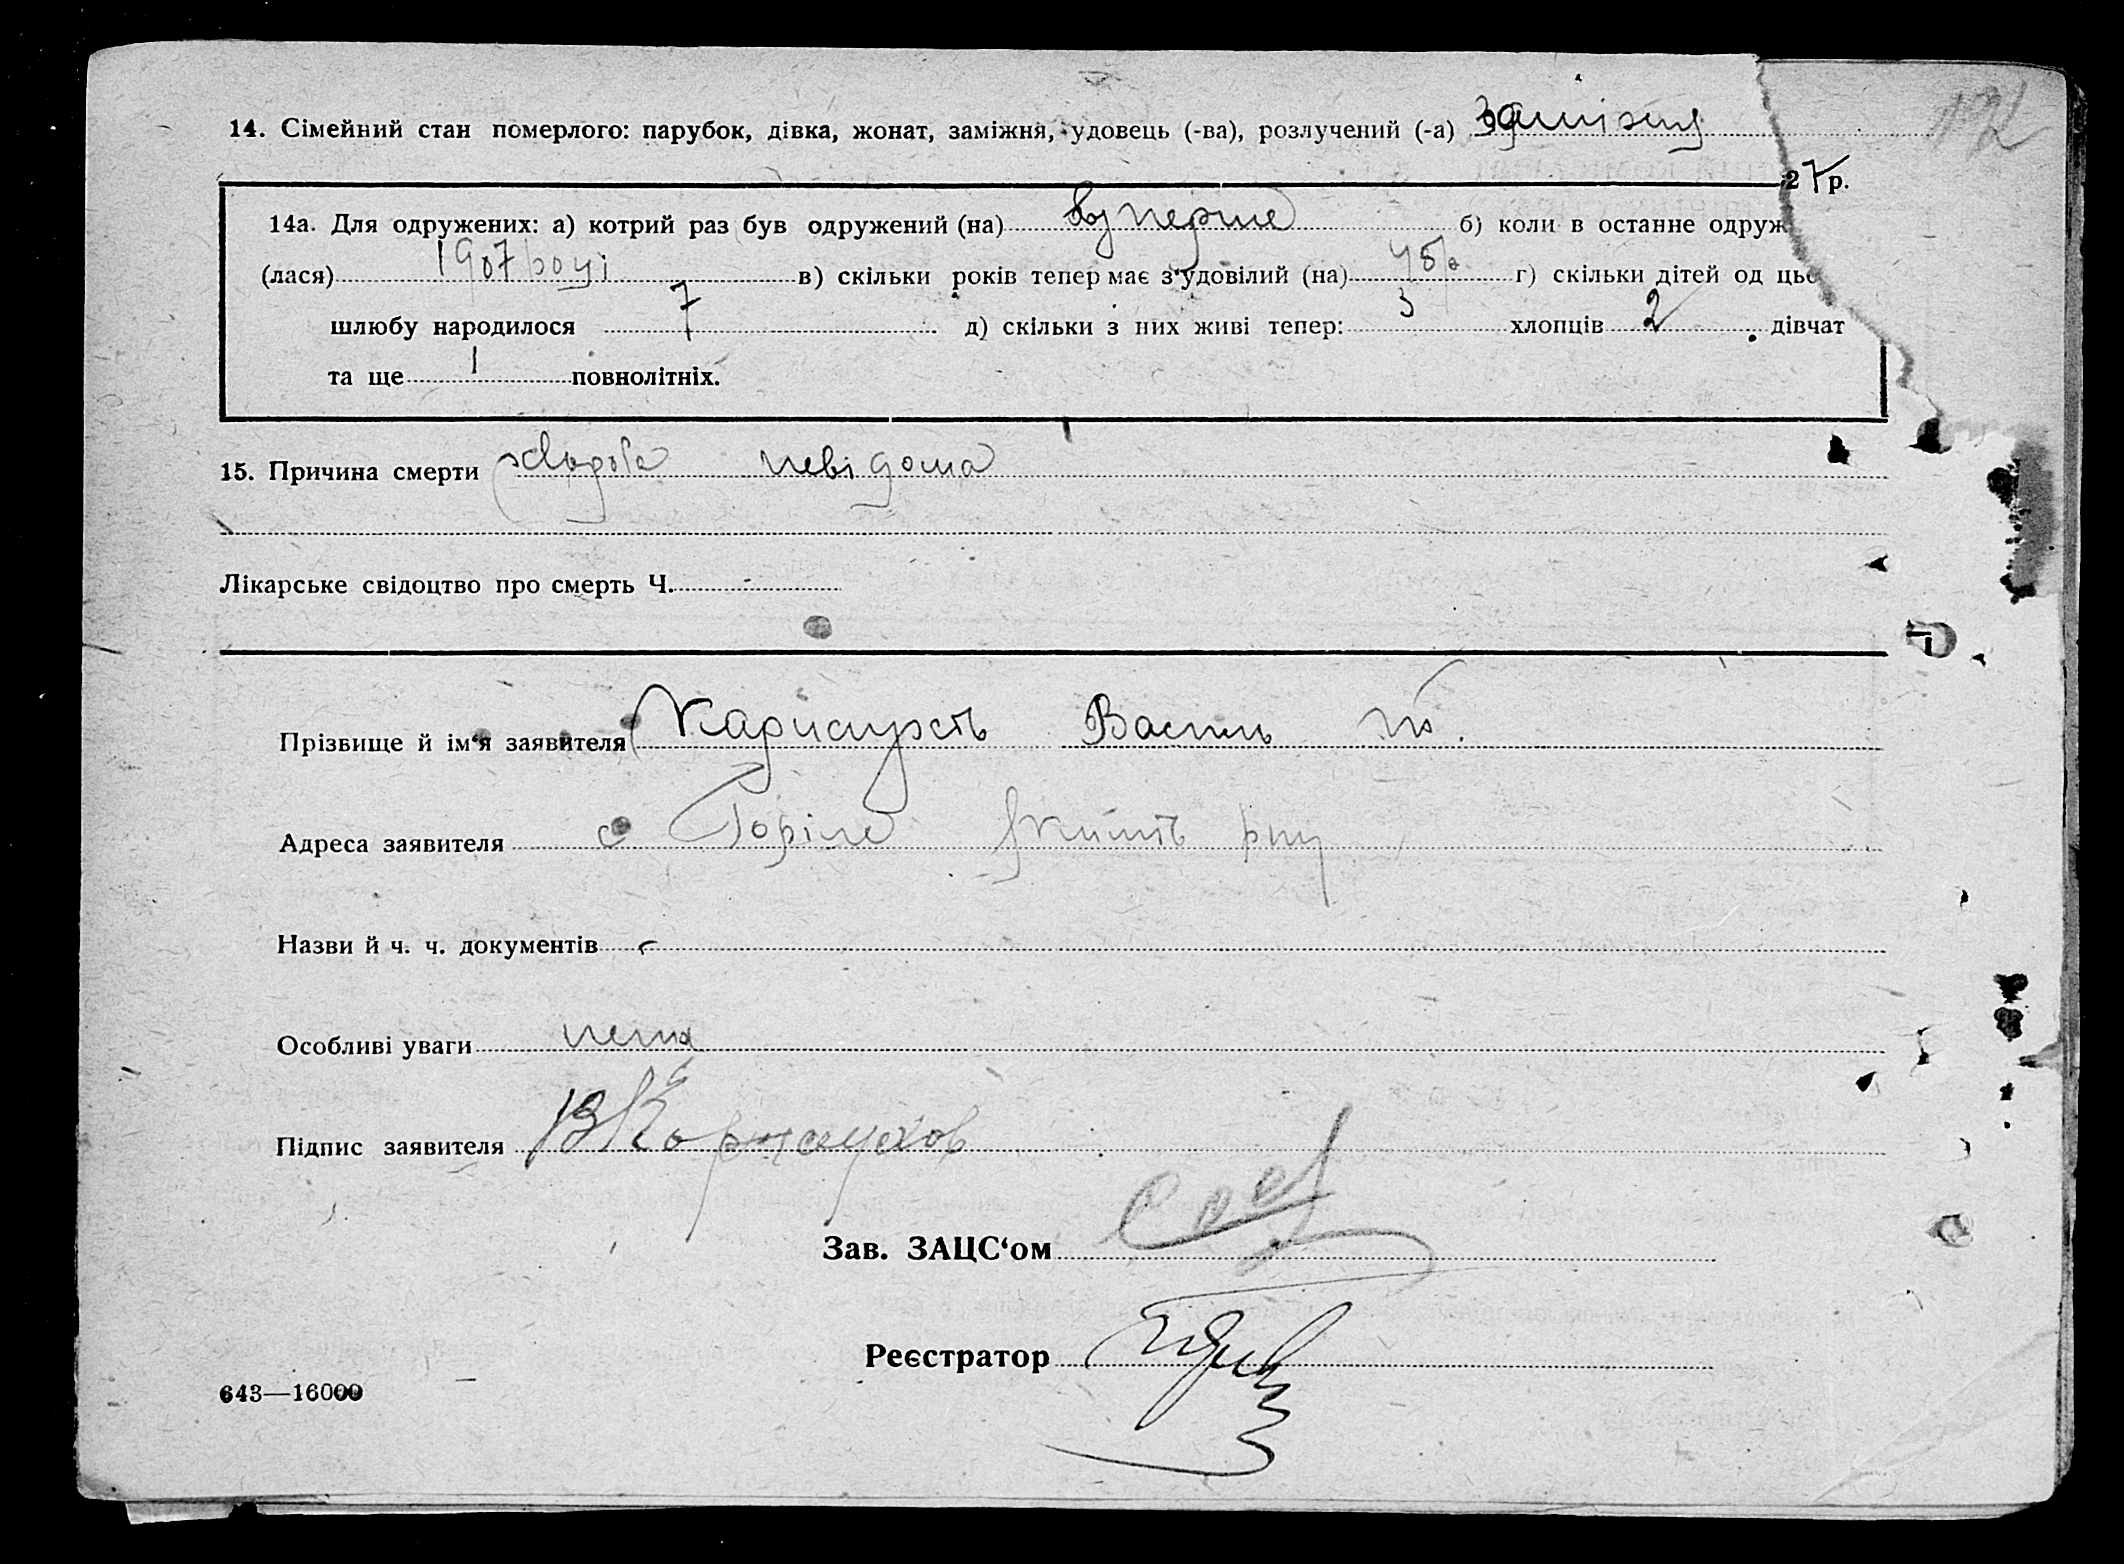 14. Сімейний стан померлого: парубок, дівка, жонат, заміжня, удовець (-ва), розлучений (-а) заміжня
27 р.
14а. Для одружених: а) котрий раз був одружений (на) вуперше б) коли в останне одруж
(лася) 1907 році в) скільки років тепер має з'удовілий (на) 45 г) скільки дітей од цьо
шлюбу народилося 7 д) скільки з них живі тепер: 3 хлопців 2 дівчат
та ще 1 повнолітніх.
15. Причина смерти хвороба невідома
Лікарське свідоцтво про смерть Ч. -
Прізвище й ім'я заявителя Василь
Адреса заявителя с Горіле
Назви й ч. ч. документів -
Особливі уваги нема
Підпис заявителя
Зав. ЗАЦС'ом
Реєстратор
643—16000